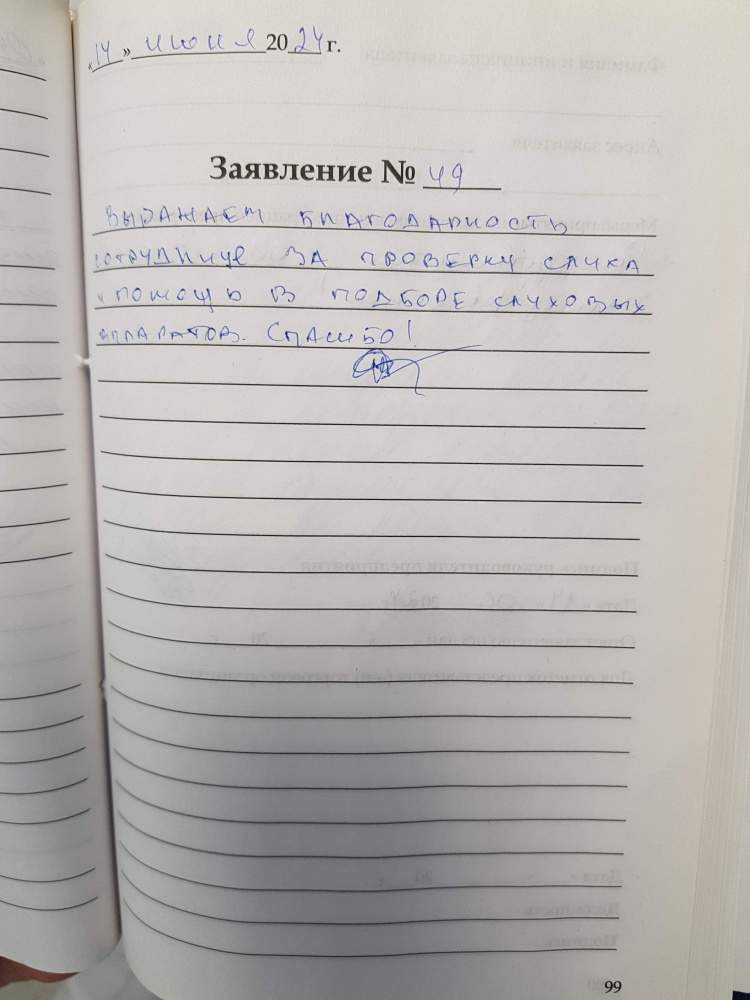 «14» июня 2024 г.
Заявление № 49
ВЫРАЖАЕМ БЛАГОДАРНОСТЬ
СОТРУДНИЦЕ ЗА ПРОВЕРКУ СЛУХА
И ПОМОЩЬ В ПОДБОРЕ СЛУХОВЫХ
АППАРАТОВ. СПАСИБО!
99